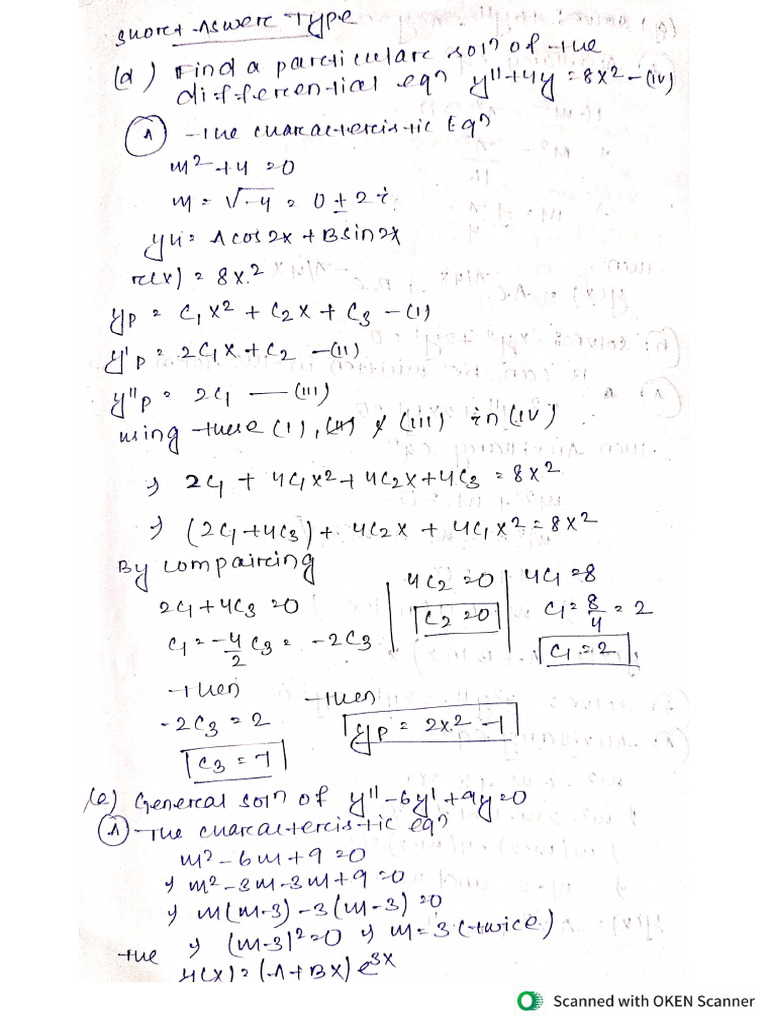 Short Aswere Type
(d) Find a particulare soln of the
differential eqn y''+4y = 8x² - (iv)
(A) The characteristic Eqn
m² + 4 = 0
m = √-4 = 0 ± 2i
yH = A cos 2x + B sin 2x
r(x) = 8x²
yp = C₁x² + C₂x + C₃ - (i)
y'p = 2C₁x + C₂ - (ii)
y''p = 2C₁ — (iii)
using these (i), (ii) & (iii) in (iv)
⇒ 2C₁ + 4C₁x² + 4C₂x + 4C₃ = 8x²
⇒ (2C₁+4C₃) + 4C₂x + 4C₁x² = 8x²
By compairing
2C₁+4C₃ = 0
C₁ = -4/2 C₃ = -2C₃
then
-2C₃ = 2
C₃ = -1
4C₂ = 0
C₂ = 0
4C₁ = 8
C₁ = 8/4 = 2
C₁ = 2
then
yp = 2x² - 1
(e) General soln of y'' - 6y' + 9y = 0
(A) The characteristic eqn
m² - 6m + 9 = 0
⇒ m² - 3m - 3m + 9 = 0
⇒ m(m-3) - 3(m-3) = 0
⇒ (m-3)² = 0 ⇒ m = 3 (twice)
the
y(x) = (A + Bx) e³ˣ
Scanned with OKEN Scanner